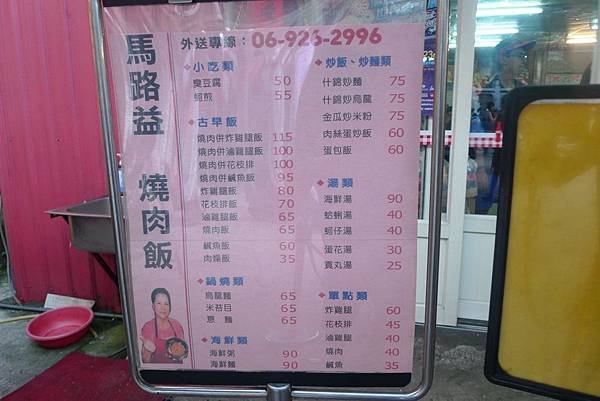 馬路益 燒肉飯
外送專線：06-926-2996
◆小吃類
臭豆腐 50
蚵煎 55
◆古早飯
燒肉併炸雞腿飯 115
燒肉併滷雞腿飯 100
燒肉併花枝排 100
燒肉併鹹魚飯 95
炸雞腿飯 80
花枝排飯 70
滷雞腿飯 65
燒肉飯 65
鹹魚飯 60
肉燥飯 35
◆鍋燒類
烏龍麵 65
米苔目 65
意麵 65
◆海鮮類
海鮮粥 90
海鮮麵 90
◆炒飯、炒麵類
什錦炒麵 75
什錦炒烏龍 75
金瓜炒米粉 75
肉絲蛋炒飯 60
蛋包飯 60
◆湯類
海鮮湯 90
蛤蜊湯 40
蚵仔湯 40
蛋花湯 30
貢丸湯 25
◆單點類
炸雞腿 60
花枝排 45
滷雞腿 40
燒肉 40
鹹魚 35